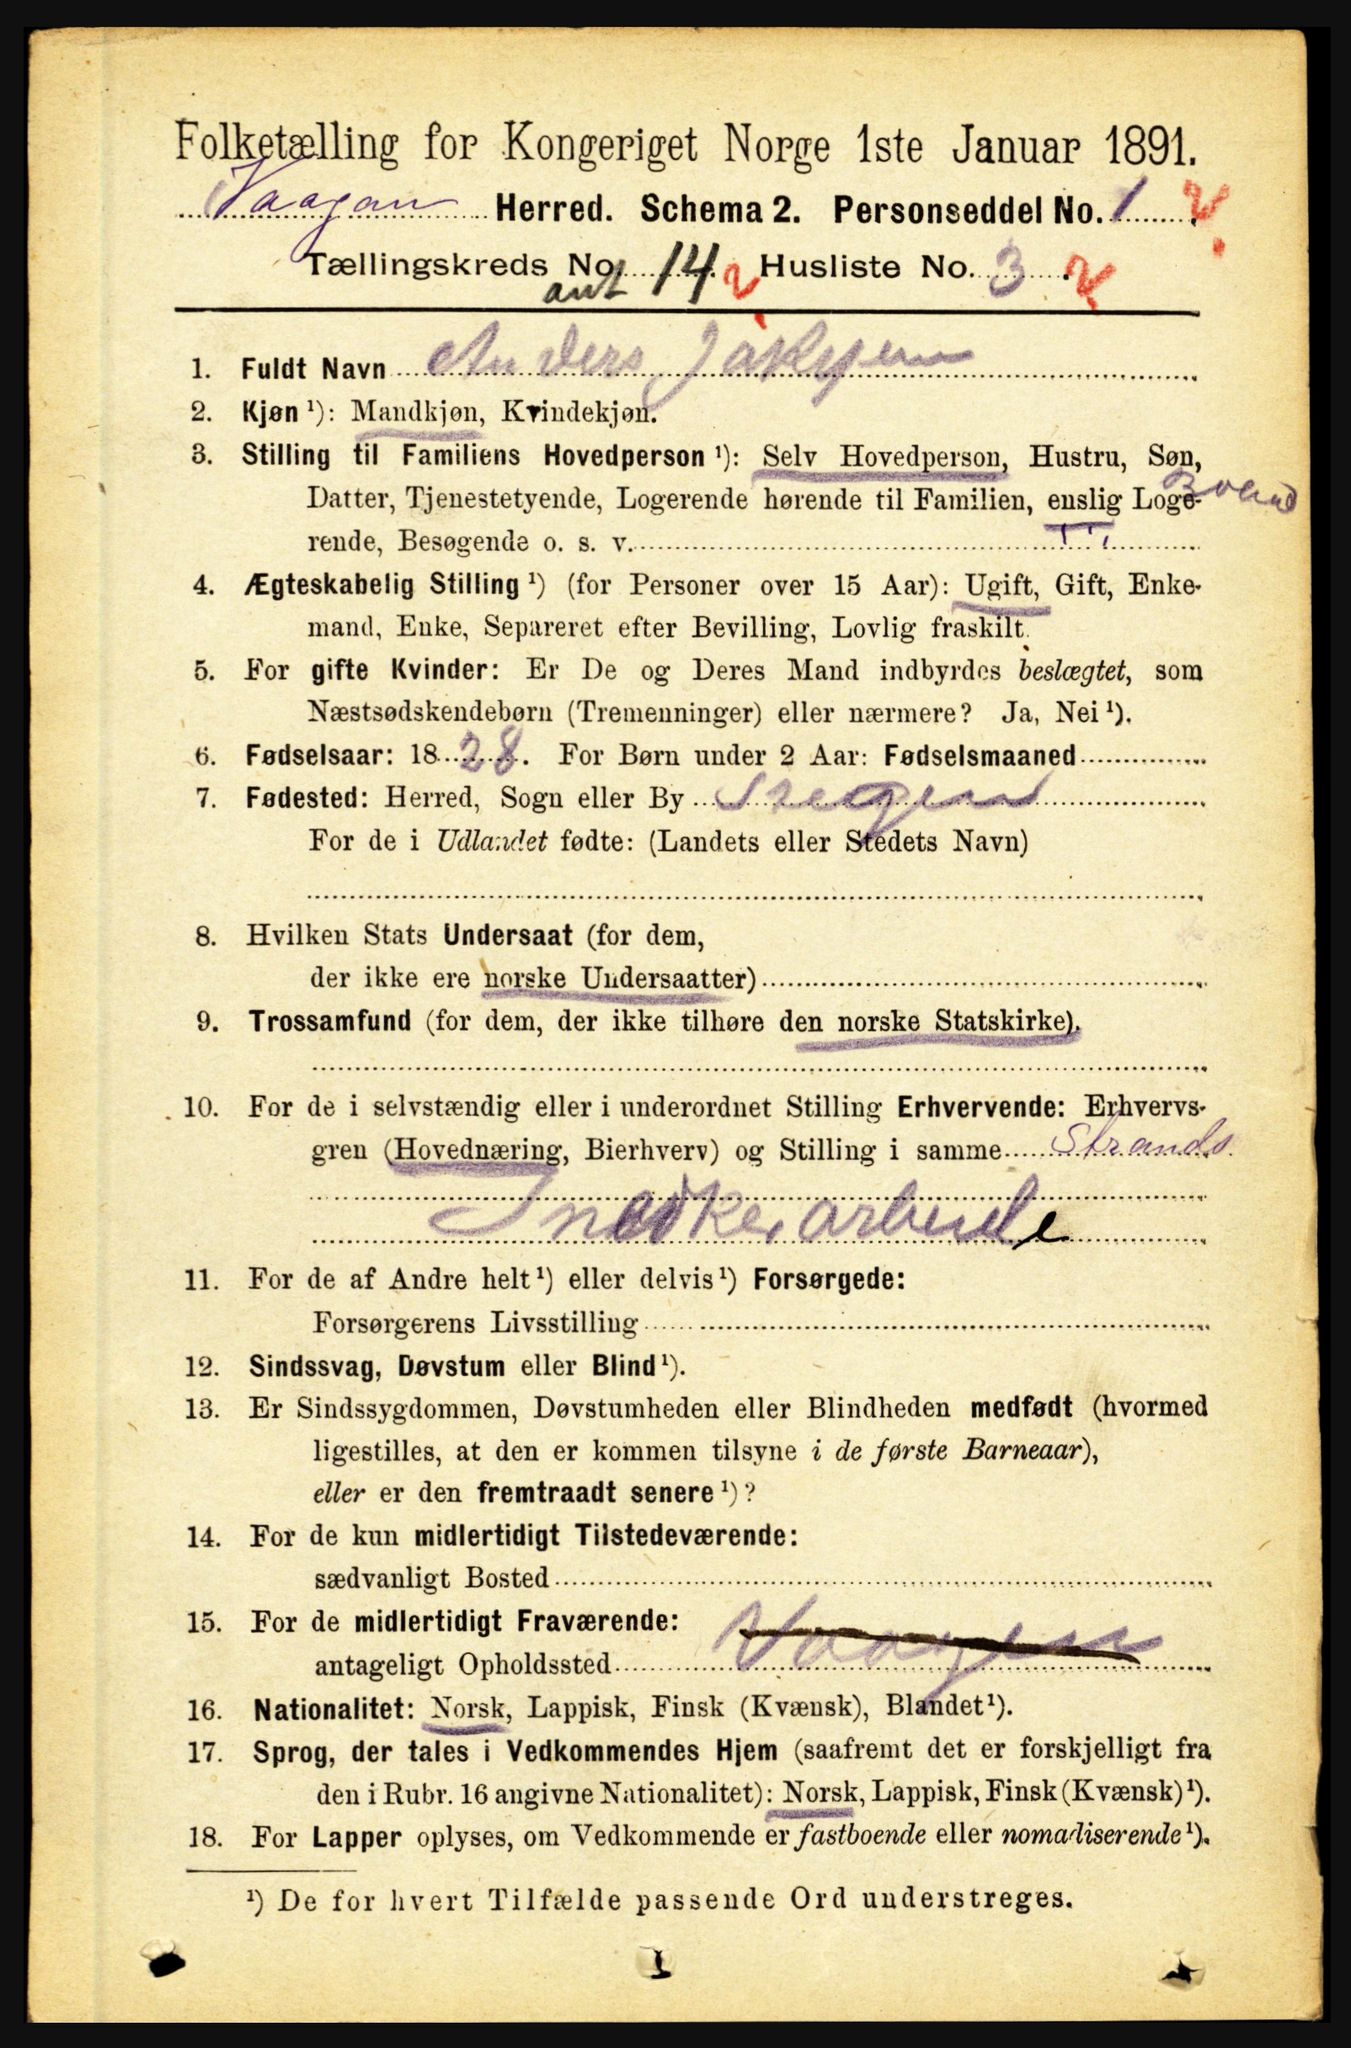 Folketælling for Kongeriget Norge 1ste Januar 1891.
Vaagan Herred. Schema 2. Personseddel No. 1
Tællingskreds No. 14 Husliste No. 3
ant
1. Fuldt Navn Anders
2. Kjøn ¹): Mandkjøn, Kvindekjøn.
3. Stilling til Familiens Hovedperson ¹): Selv Hovedperson, Hustru, Søn,
Datter, Tjenestetyende, Logerende hørende til Familien, enslig Loge-
rende, Besøgende o. s. v.
4. Ægteskabelig Stilling ¹) (for Personer over 15 Aar): Ugift, Gift, Enke-
mand, Enke, Separeret efter Bevilling, Lovlig fraskilt.
5. For gifte Kvinder: Er De og Deres Mand indbyrdes beslægtet, som
Næstsødskendebørn (Tremenninger) eller nærmere? Ja, Nei ¹).
6. Fødselsaar: 1828. For Børn under 2 Aar: Fødselsmaaned
7. Fødested: Herred, Sogn eller By Stegen
For de i Udlandet fødte: (Landets eller Stedets Navn)
8. Hvilken Stats Undersaat (for dem,
der ikke ere norske Undersaatter)
9. Trossamfund (for dem, der ikke tilhøre den norske Statskirke).
10. For de i selvstændig eller i underordnet Stilling Erhvervende: Erhvervs-
gren (Hovednæring, Bierhverv) og Stilling i samme Strands.
Snedkerarbeide
11. For de af Andre helt ¹) eller delvis ¹) Forsørgede:
Forsørgerens Livsstilling
12. Sindssvag, Døvstum eller Blind ¹).
13. Er Sindssygdommen, Døvstumheden eller Blindheden medfødt (hvormed
ligestilles, at den er kommen tilsyne i de første Barneaar),
eller er den fremtraadt senere ¹)?
14. For de kun midlertidigt Tilstedeværende:
sædvanligt Bosted
15. For de midlertidigt Fraværende:
antageligt Opholdssted Vaagen
16. Nationalitet: Norsk, Lappisk, Finsk (Kvænsk), Blandet ¹).
17. Sprog, der tales i Vedkommendes Hjem (saafremt det er forskjelligt fra
den i Rubr. 16 angivne Nationalitet): Norsk, Lappisk, Finsk (Kvænsk) ¹).
18. For Lapper oplyses, om Vedkommende er fastboende eller nomadiserende ¹).
¹) De for hvert Tilfælde passende Ord understreges.